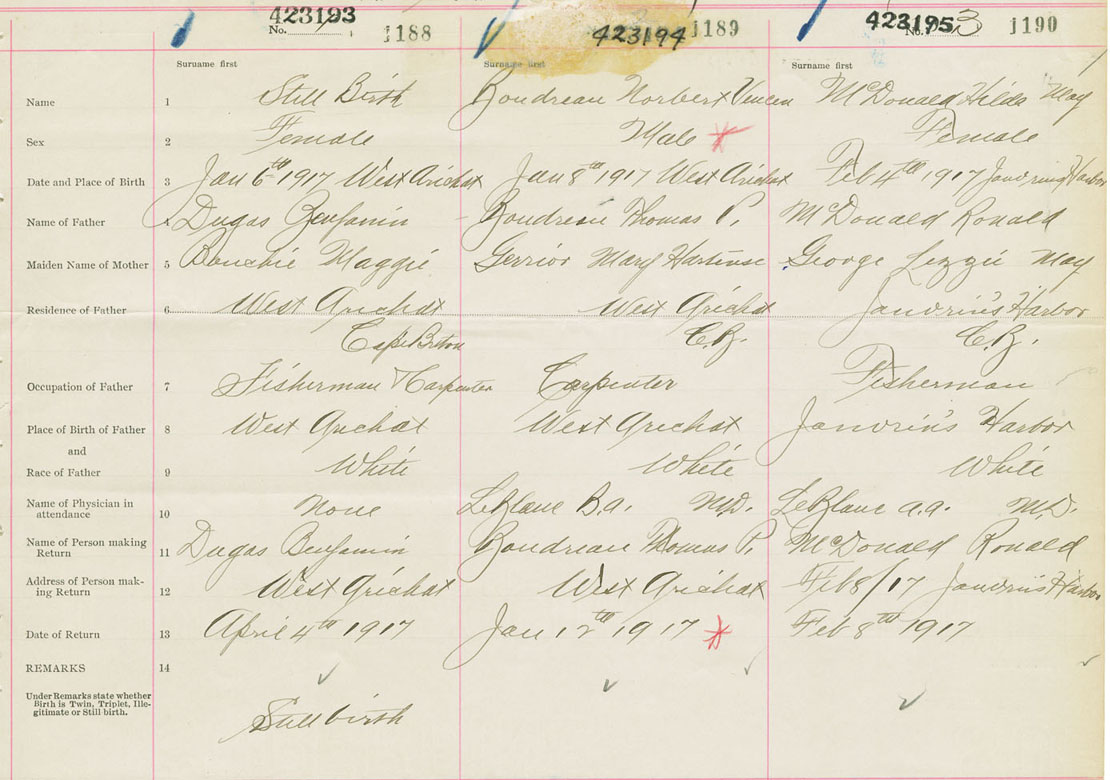 423193 423194 423195 3
No. 1188 1189 No. 1190
Surname first Surname first Surname first
Name 1 Still Birth Boudreau Norbert Vincen McDonald Hilda May
Sex 2 Female Male Female
Date and Place of Birth 3 Jan 6th 1917 West Arichat Jan 8th 1917 West Arichat Feb 4th 1917 Janvrins Harbor
Name of Father 4 Dugas Benjamin Boudreau Thomas P. McDonald Ronald
Maiden Name of Mother 5 Bouchie Maggie Gerrior Mary Hortense George Lizzie May
Residence of Father 6 West Arichat West Arichat Janvrin's Harbor
Cape Breton C.B. C.B.
Occupation of Father 7 Fisherman & Carpenter Carpenter Fisherman
Place of Birth of Father 8 West Arichat West Arichat Janvrin's Harbor
and
Race of Father 9 White White White
Name of Physician in
attendance 10 None LeBlanc B.A. M.D. LeBlanc A.A. M.D.
Name of Person making
Return 11 Dugas Benjamin Boudreau Thomas P. McDonald Ronald
Address of Person mak-
ing Return 12 West Arichat West Arichat Feb 8/17 Janvrins Harbor
Date of Return 13 April 4th 1917 Jan 12th 1917 Feb 8th 1917
REMARKS 14
Under Remarks state whether
Birth is Twin, Triplet, Ille-
gitimate or Still-birth.
Still birth